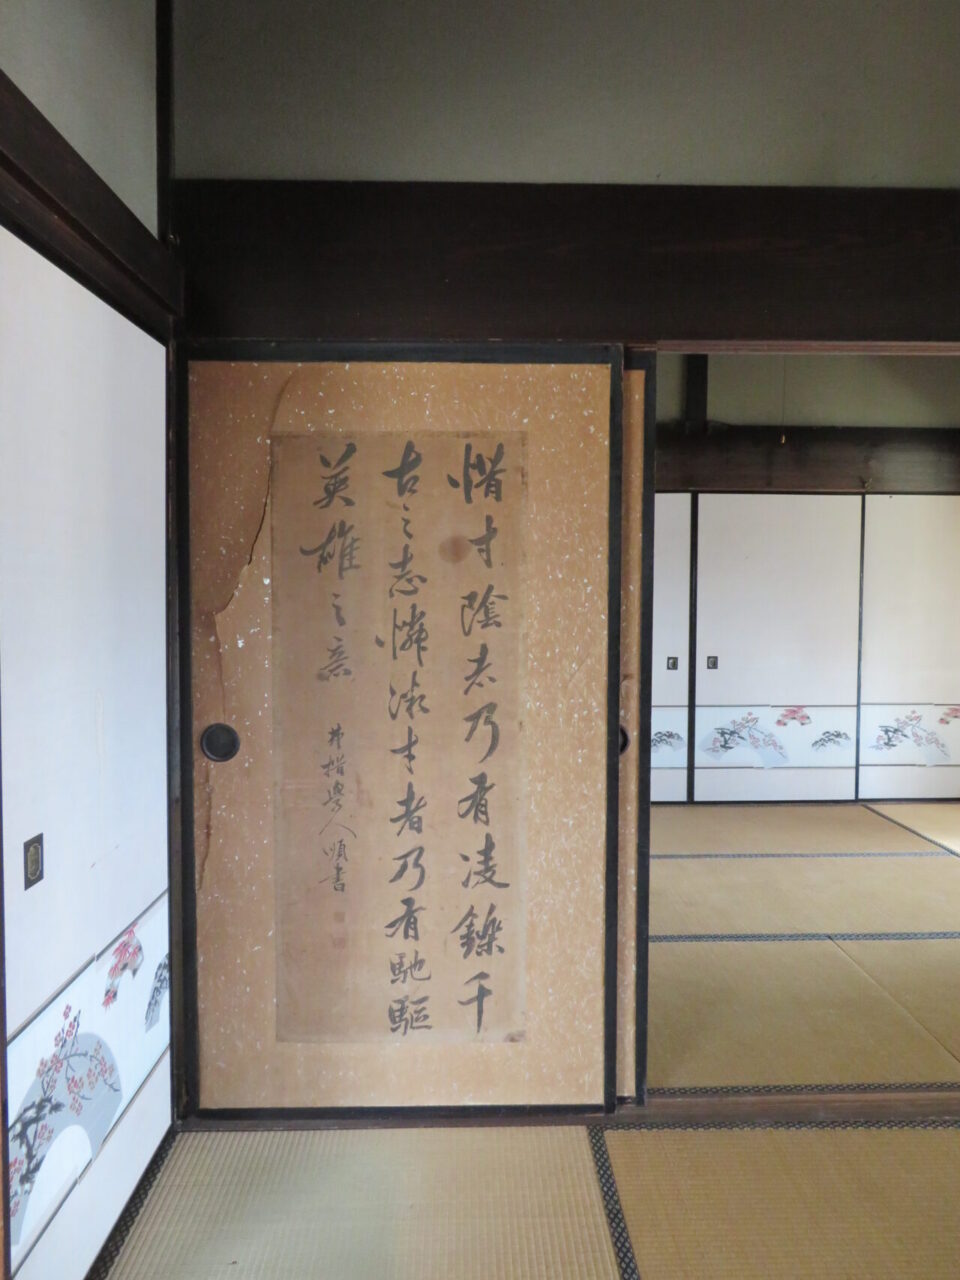 惜寸陰者乃有凌鑠千
古之志憐微才者乃有馳驅
英雄之意
學人順書